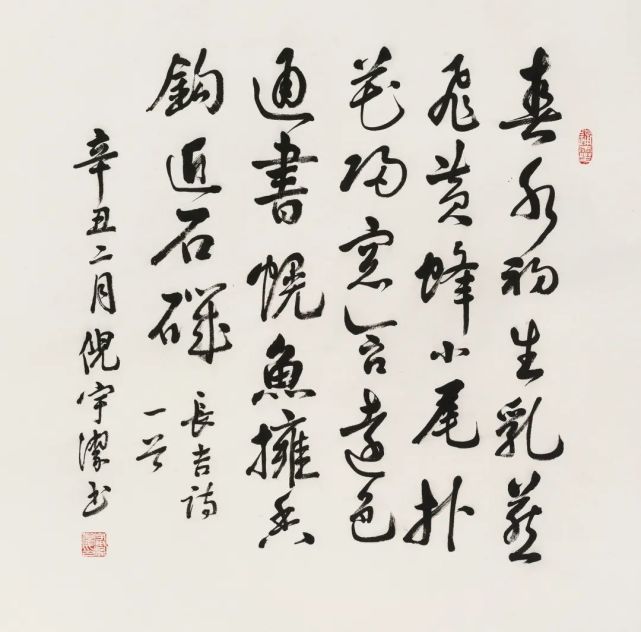 春水初生乳燕
飛黄蜂小尾撲
花歸窓含遠色
通書幌魚擁香
鈎近石磯
長吉詩
一首
辛丑二月倪宇潔书